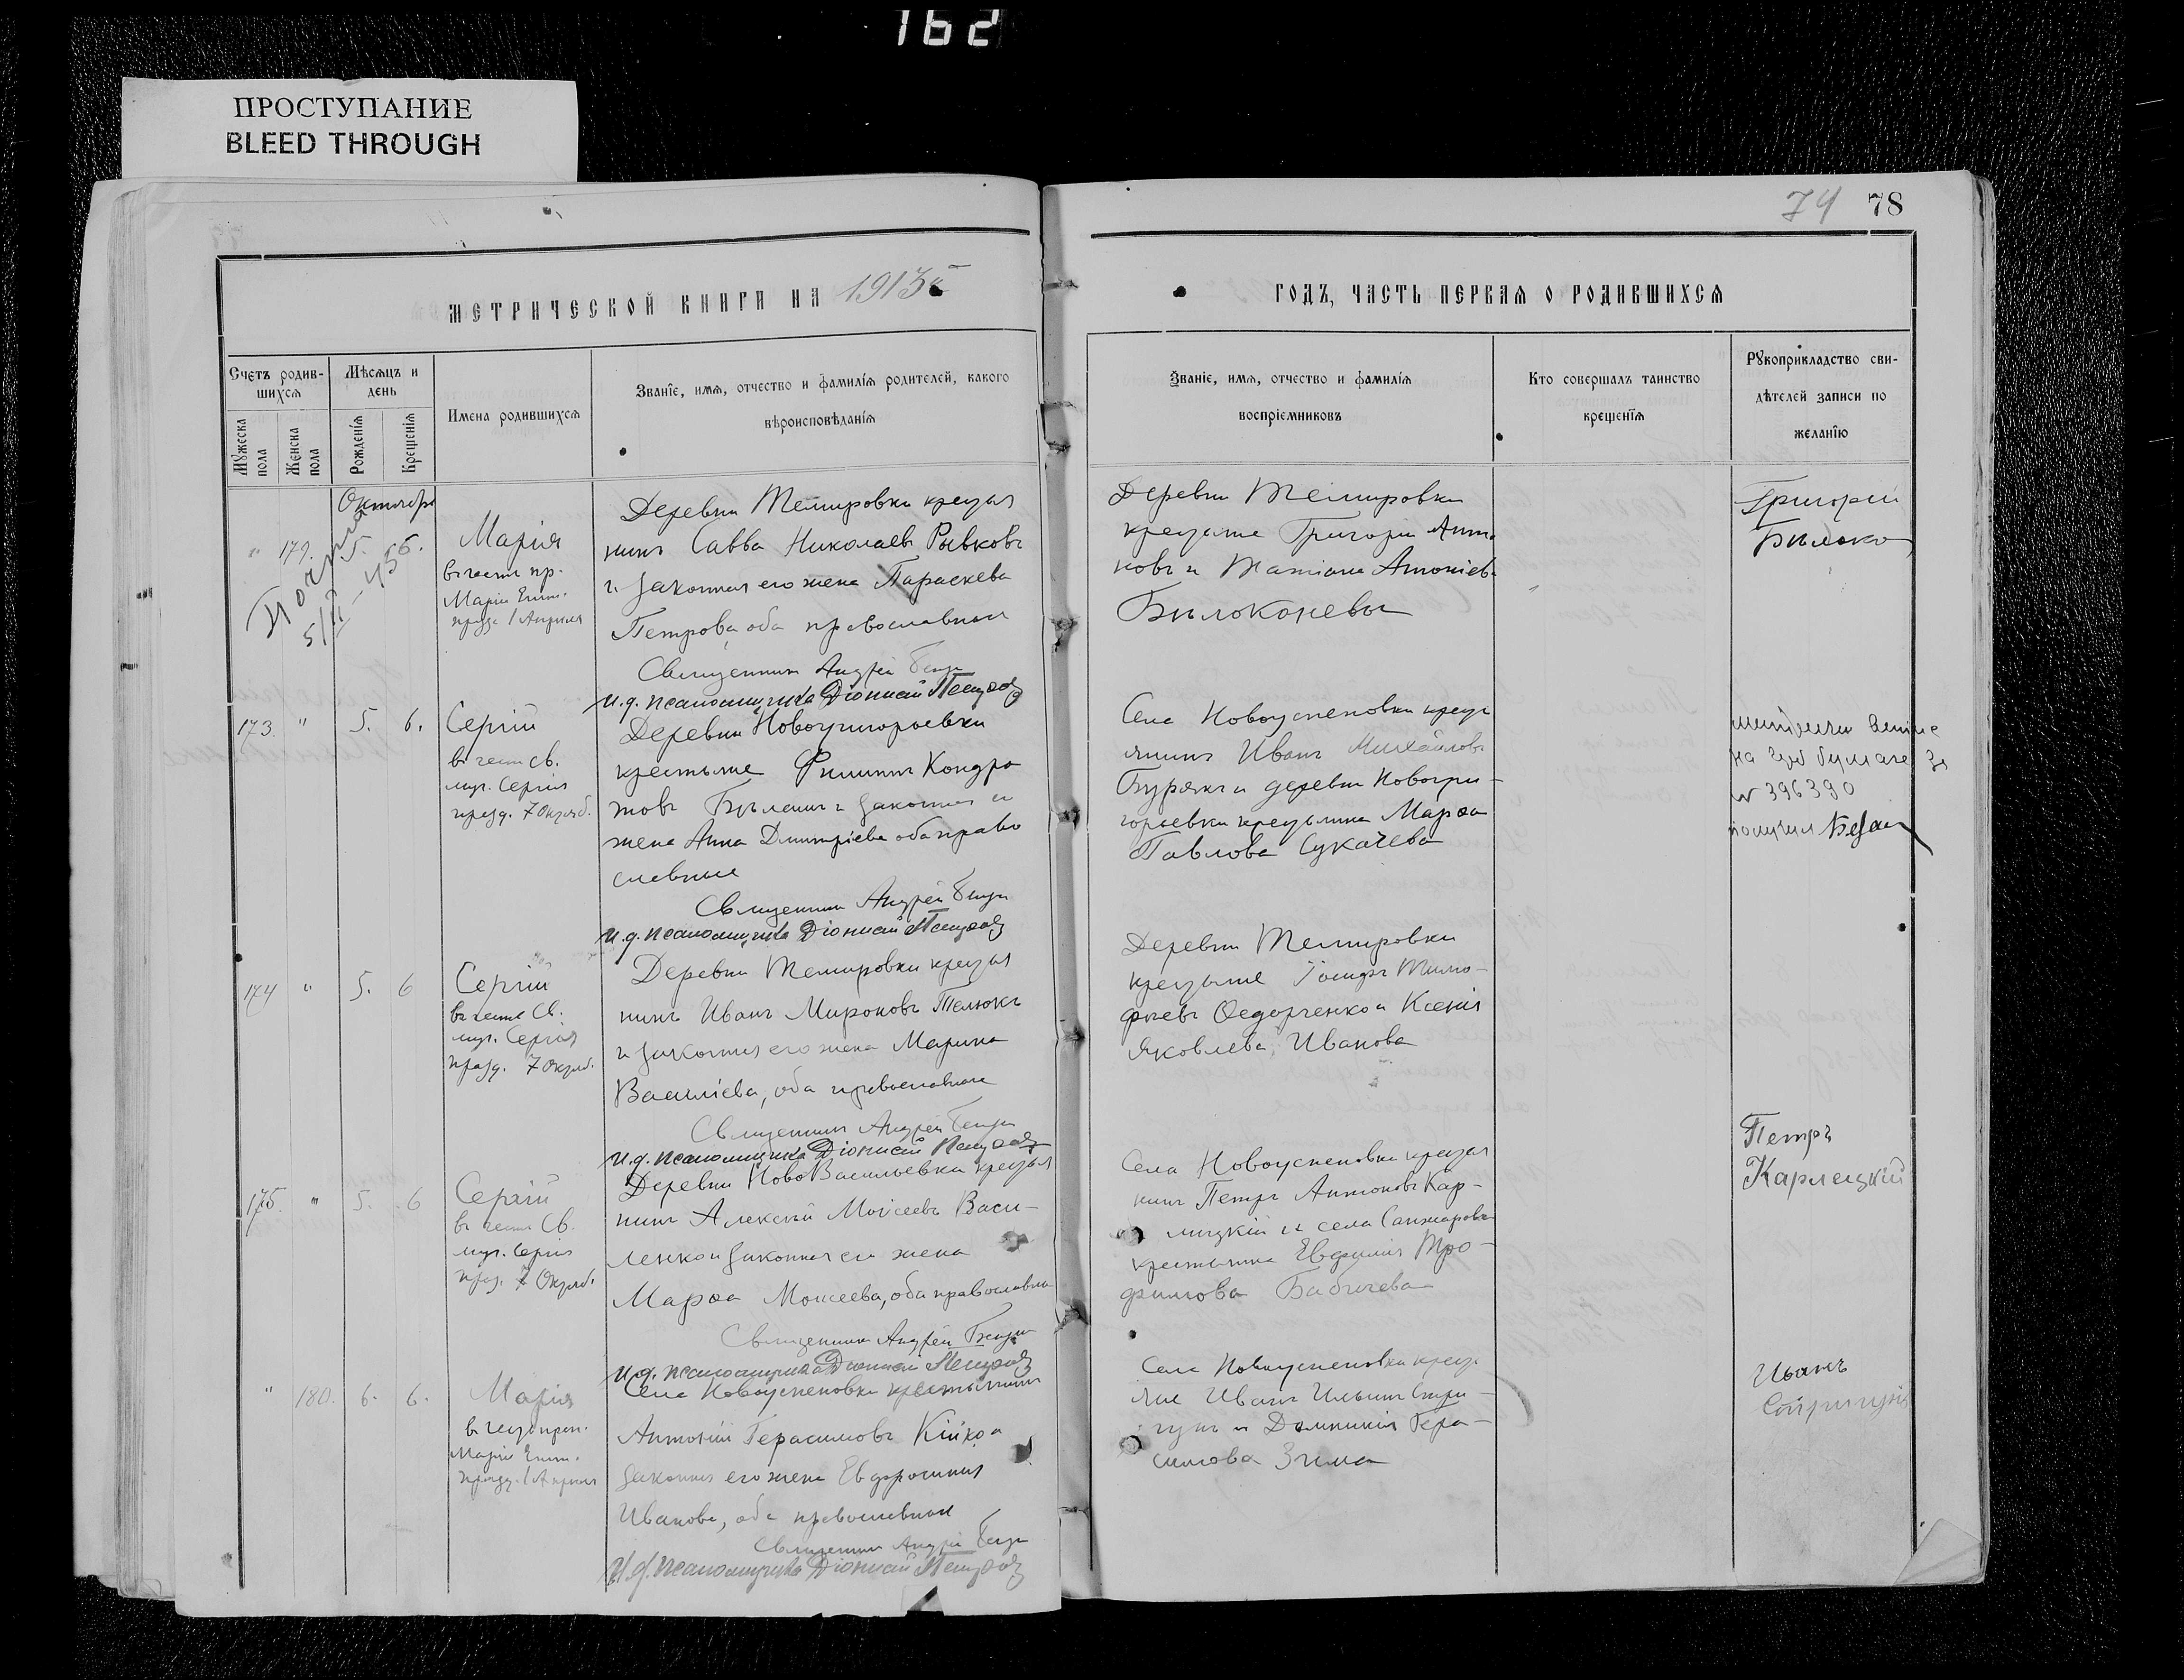 162
ПРОСТУПАНИЕ
BLEED THROUGH
74 78
МЕТРИЧЕСКОЙ КНИГИ НА 1913й
ГОДЪ, ЧАСТЬ ПЕРВАЯ О РОДИВШИХСЯ
Счетъ родив-
шихся
Мужеска пола
Женска пола
Мѣсяцъ и
день
Рожденія
Крещенія
Имена родившихся
Званіе, имя, отчество и фамилія родителей, какого
вѣроисповѣданія
Званіе, имя, отчество и фамилія
воспріемниковъ
Кто совершалъ таинство
крещенія
Рукоприкладство сви-
дѣтелей записи по
желанію
Октября
" 179. 5. 6.
Марія
въ честь пр.
Маріи Егип.
празд 1 Апреля
Деревни Темировки крестья
нинъ Савва Николаевъ Рывковъ
и законная его жена Параскева
Петрова, оба православные
Священникъ Андрей
И.д. псаломщика Діонисій
Деревни Темировки
крестьяне Григорій Анто
новъ и Татіана Антоніев
Бѣлоконевы
Григорій
Бѣлоко
173. " 5. 6.
Сергій
въ честь св.
муч. Сергія
празд. 7 Октяб.
Деревни Новогригорьевки
крестьяне Филиппъ Кондра
товъ и законная его
жена Анна Димитріева оба право
славные
Священникъ Андрей
И.д. псаломщика Діонисій
Села Новоуспеновки крест
янинъ Иванъ Михайловъ
Бурякъ и деревни Новогри-
горьевки крестьянка Марѳа
Павлова Сукачева
на бумаге за
№ 396390
получил
174 " 5. 6
Сергій
въ честь Св.
муч. Сергія
празд. 7 Октяб.
Деревни Темировки крестья
нинъ Иванъ Мироновъ Телюкъ
и законная его жена Марина
Василіева, оба православные
Священникъ Андрей
И.д. псаломщика Діонисій
Деревни Темировки
крестьяне Іосифъ Тимо-
феевъ Ѳедорченко и Ксенія
Яковлева Иванова
175. " 5. 6
Сергій
въ честь Св.
муч. Сергія
праз. 7 Октяб.
Деревни НовоВасильевки крестья
нинъ Алексѣй Моісеевъ Васи-
ленко и законная его жена
Марѳа Моисеева, оба православные
Священникъ Андрей
И.д. псаломщика Діонисій
Села Новоуспеновки крестья
нинъ Петръ Антоновъ Кар-
лицкій и села Санжаровки
крестьянка Евфимія Тро-
фимова Бабичева
Петръ
Карлецкій
" 180. 6. 6.
Марія
въ честь преп.
Маріи Егип.
празд. 1 Апреля
Села Новоуспеновки крестьянинъ
Антоній Герасимовъ Кійко и
законная его жена Евфросинія
Иванова, оба православные
Священникъ Андрей
И.д. псаломщика Діонисій
Села Новоуспеновки кресть
яне Иванъ Ильинъ Стри-
гунъ и Домникія Гера-
симова Зима
Иванъ